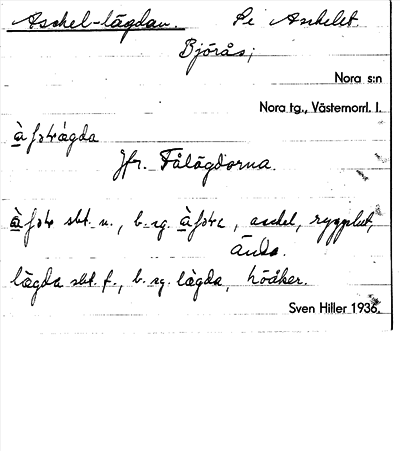 Aschel-lägdan. Se Aschelet
Björås;
Nora s:n
Nora tg., Västernorrl. l.
Jfr. Fålägdorna.
sbt. n., b. sg. , aschel, ryggslut,
ända.
lægda sbt. f., b. sg. lægda, höåker.
Sven Hiller 1936.